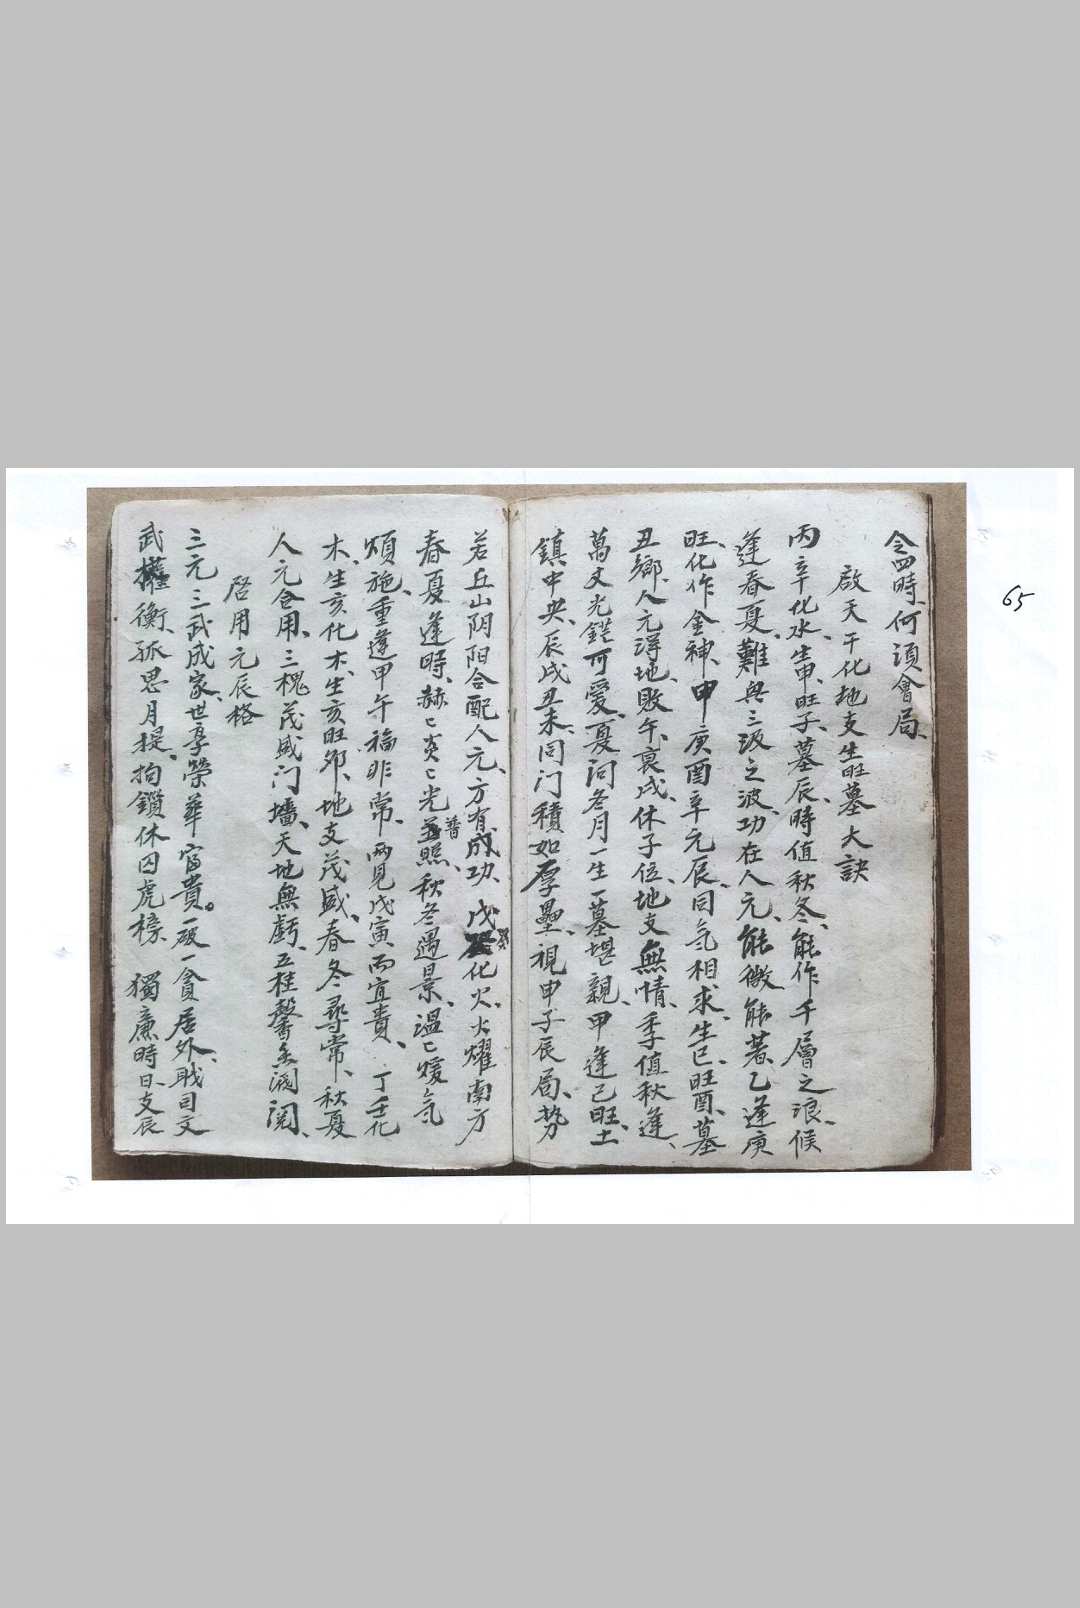 65
合四時、何須會局、
啟天干化地支生旺墓大訣
丙辛化水、生申、旺子、墓辰、時值秋冬、能作千層之浪、候
逢春夏、難興三汲之波、功在人元、能微能著、乙逢庚
旺、化作金神、申庚酉辛元辰、同気相求、生巳、旺酉、墓
丑鄉、人元得地、敗午、衰戌、休子位、地支無情、季值秋逢、
萬丈光鋩可愛、夏詞冬月一生一墓堪親、甲逢己旺、土
鎮中央、辰戌丑未、同门積如厚壘、視申子辰局、势
若丘山阴阳合配人元、方有成功、戊癸化火、火耀南方
春夏逢時、赫〻炎〻光普照、秋冬遇景、溫〻煖気
頌施、重逢甲午福非常、两見戊寅而宜貴、丁壬化
木、生亥化木、生亥旺卯、地支茂盛、春冬尋常、秋夏
人元合用、三槐茂盛门墻、天地無虧、五桂馨香阀阅、
啓用元辰格
三元三武成家、世享榮華富貴。一破一貪居外、戢司文
武權衡、孤思月提、拘鑽休囚虎榜 獨廉時日、支辰